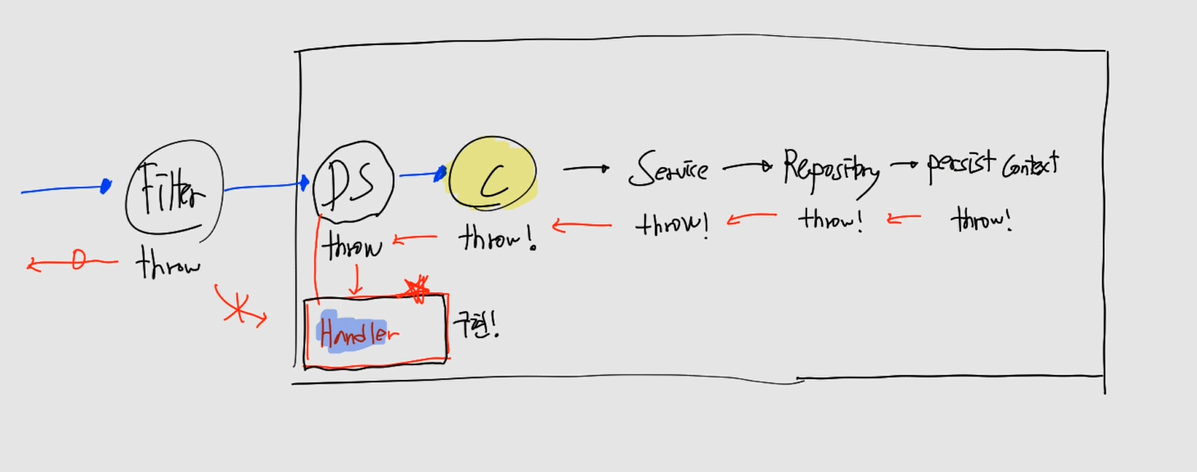 Filter
DS
C
Service
Repository
persist context
throw
throw
throw!
throw!
throw!
throw!
Handler
구현!